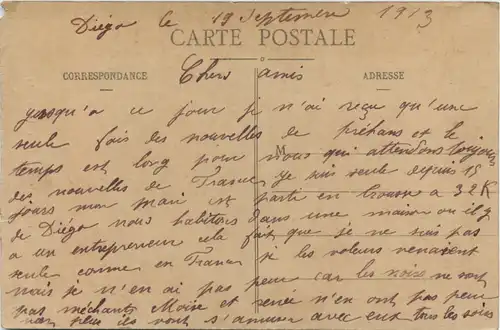 Diégo le 19 Septembre 1913
CARTE POSTALE
CORRESPONDANCE
ADRESSE
Chers amis
jusqu'a ce jour je n'ai reçu qu'une
seule fois des nouvelles de et le
M
temps est long pour nous qui attendons toujours
des nouvelles de France je suis seule depuis 15
jours mon mari est parti en brousse a 32 K
de Diégo nous habitons dans une maison ou il y
a un entrepreneur cela fait que je ne suis pas
seule comme en France si les voleurs venaient
mais je n'en ai pas peur car les noirs ne sont
pas méchants Moïse et n'en ont pas peur
non plus ils vont s'amuser avec eux tous les soirs